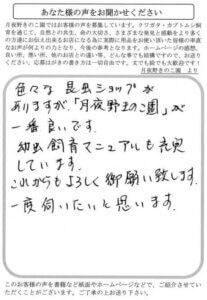 あなた様の声をお聞かせください
月夜野きのこ園ではお客様の声を募集しています。クワガタ・カブトムシ飼
育を通じて、自然との共生、命の大切さ、さまざまな発見と感動をより多く
の方達にお伝え出来るお店になる為に実際に用品をお使い頂いた皆様の率直
なお声が何よりの力となり、今後の参考となります。ホームページの感想、
良い所、悪い所、他のお店との違いなど、どんな事でも結構ですので、お送り
下さい。応募はがきの書き方は一切自由です。文でも絵でも大歓迎です！
月夜野きのこ園 より
色々な 昆虫ショップが
ありますが、「月夜野きのこ園」が
一番良いです。
幼虫飼育マニュアルも充実
しています。
これからもよろしく御願い致します。
一度伺いたいと思います。
このお客様の声を書籍など紙面やホームページなどで、ご紹介させていた
だくことがございます。ご了承の上お送り下さい。